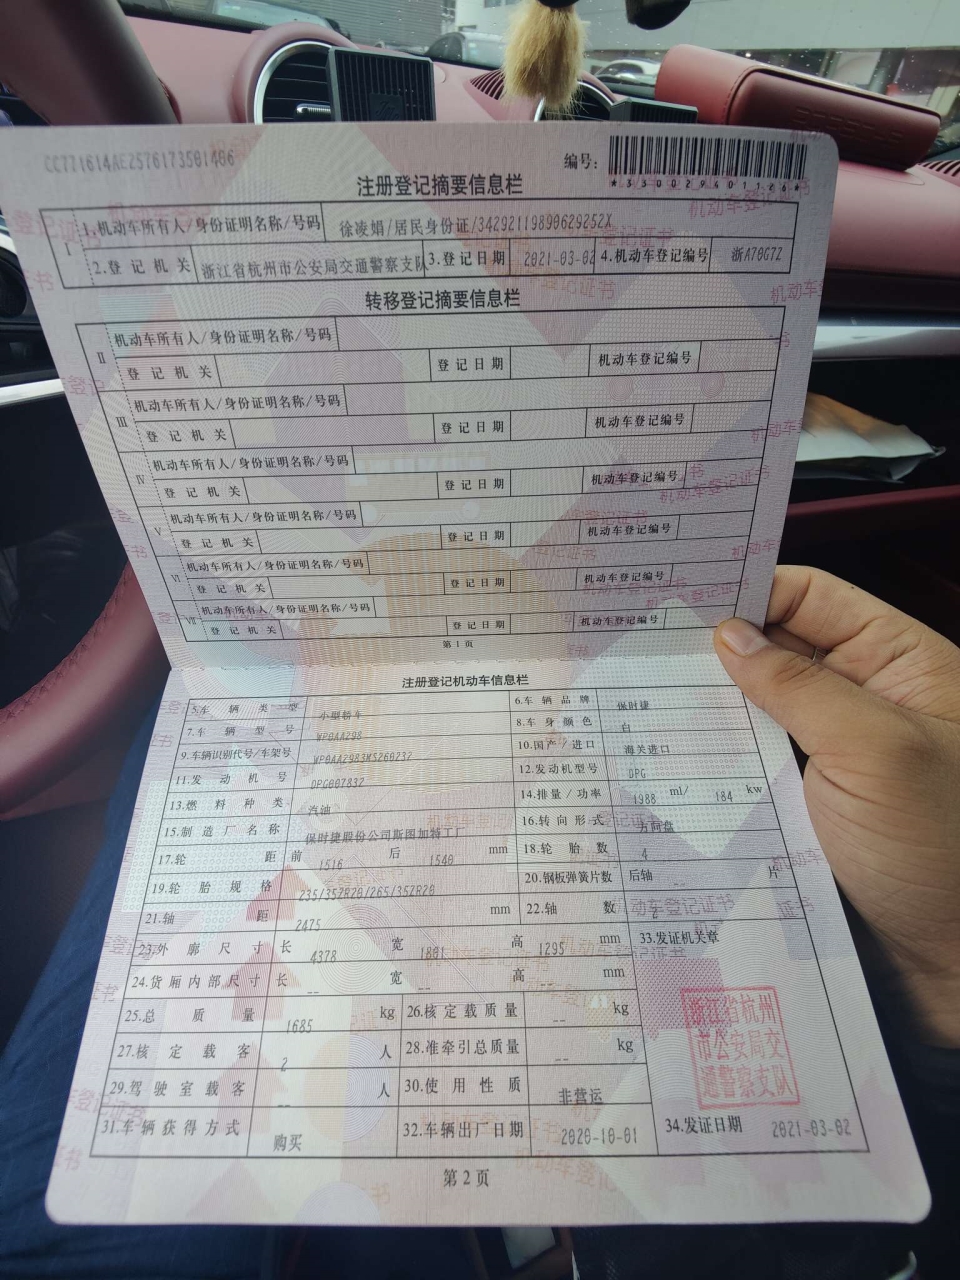 CC771614AE2576173501406
编号：
*330029401126*
注册登记摘要信息栏
Ⅰ
1.机动车所有人/身份证明名称/号码 徐凌娟/居民身份证/34292119890629252X
2.登记机关 浙江省杭州市公安局交通警察支队 3.登记日期 2021-03-02 4.机动车登记编号 浙A70G7Z
转移登记摘要信息栏
Ⅱ
机动车所有人/身份证明名称/号码
登记机关 登记日期 机动车登记编号
Ⅲ
机动车所有人/身份证明名称/号码
登记机关 登记日期 机动车登记编号
Ⅳ
机动车所有人/身份证明名称/号码
登记机关 登记日期 机动车登记编号
Ⅴ
机动车所有人/身份证明名称/号码
登记机关 登记日期 机动车登记编号
Ⅵ
机动车所有人/身份证明名称/号码
登记机关 登记日期 机动车登记编号
Ⅶ
机动车所有人/身份证明名称/号码
登记机关 登记日期 机动车登记编号
第1页
注册登记机动车信息栏
5.车辆类型 小型轿车 6.车辆品牌 保时捷
7.车辆型号 WP0AA298 8.车身颜色 白
9.车辆识别代号/车架号 WP0AA2983MS260232 10.国产/进口 海关进口
11.发动机号 DPG007832 12.发动机型号 DPG
13.燃料种类 汽油 14.排量/功率 1988 ml/ 184 kw
15.制造厂名称 保时捷股份公司斯图加特工厂 16.转向形式 方向盘
17.轮距 前 1516 后 1540 mm 18.轮胎数 4
19.轮胎规格 235/35ZR20/265/35ZR20 20.钢板弹簧片数 后轴 -- 片
21.轴距 2475 mm 22.轴数 2
23.外廓尺寸 长 4378 宽 1801 高 1295 mm 33.发证机关章
24.货厢内部尺寸 长 -- 宽 -- 高 -- mm
25.总质量 1685 kg 26.核定载质量 -- kg
27.核定载客 2 人 28.准牵引总质量 -- kg
29.驾驶室载客 -- 人 30.使用性质 非营运
浙江省杭州
市公安局交
通警察支队
31.车辆获得方式 购买 32.车辆出厂日期 2020-10-01 34.发证日期 2021-03-02
第2页